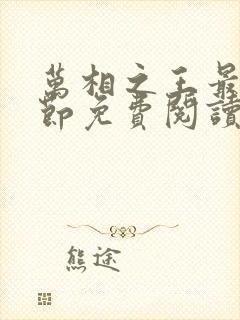 萬相之王最
節免費閱讀
熊途